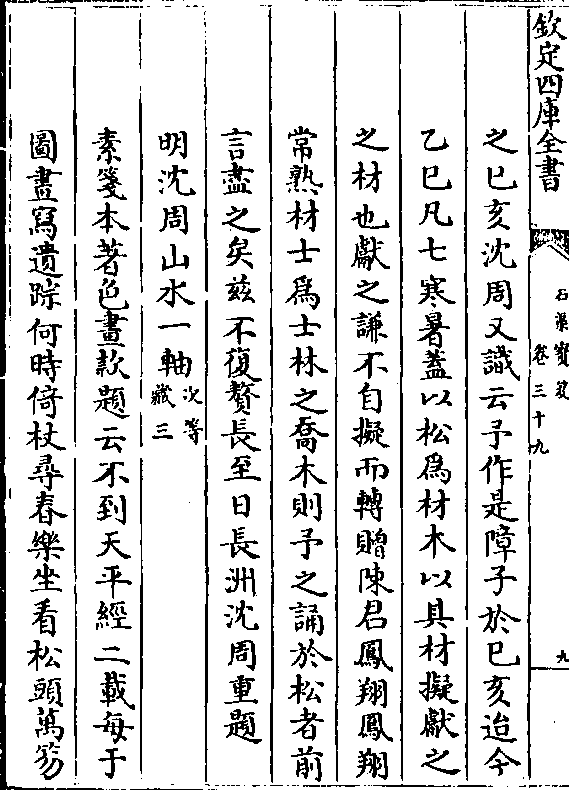 欽定四庫全書
石渠寶笈
卷三十九
九
之己亥沈周又識云予作是障子於己亥迨今
乙巳凡七寒暑蓋以松為材木以具材擬獻之
之材也獻之謙不自擬而轉贈陳君鳳翔鳳翔
常熟材士為士林之喬木則予之誦於松者前
言盡之矣兹不復贅長至日長洲沈周重題
明沈周山水一軸次等藏三
素箋本著色畫款題云不到天平經二載每于
圖畫寫遺踪何時倚杖尋春樂坐看松頭萬笏